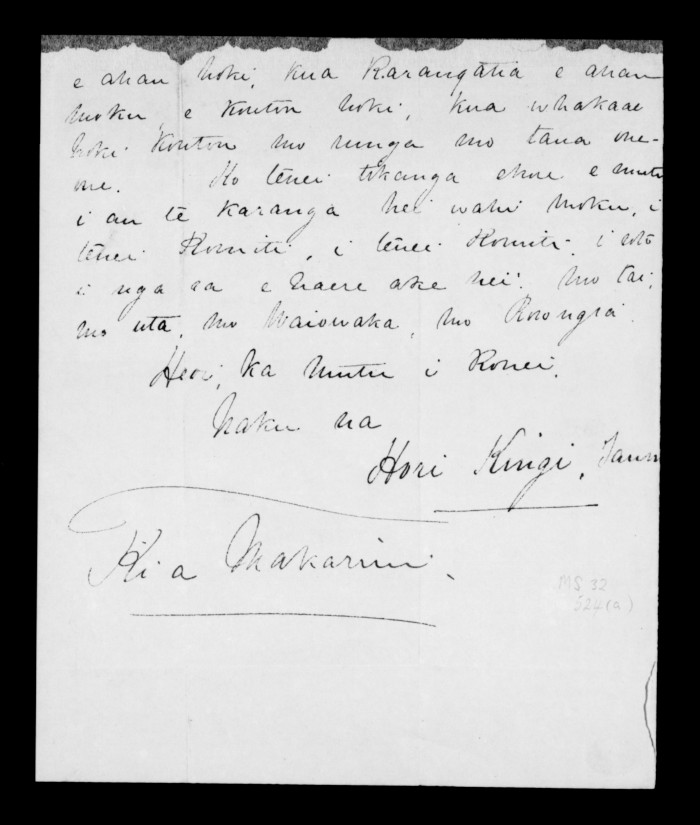 e ahau hoki, kua karangatia e ahau
moku, e koutou hoki, kua whakaae
hoki koutou mo runga mo taua one-
one. Ko tenei tikanga ekore e mutu
i au te karanga hei wahi moku, i
tenei Komiti, i tenei Komiti, i roto
i nga ra e haere ake nei. mo tai,
mo uta, mo Waiowaka, mo
Heoi, ka mutu i konei.
Naku na
Hori Kingi,
Ki a Makarini.
MS 32
524(a)